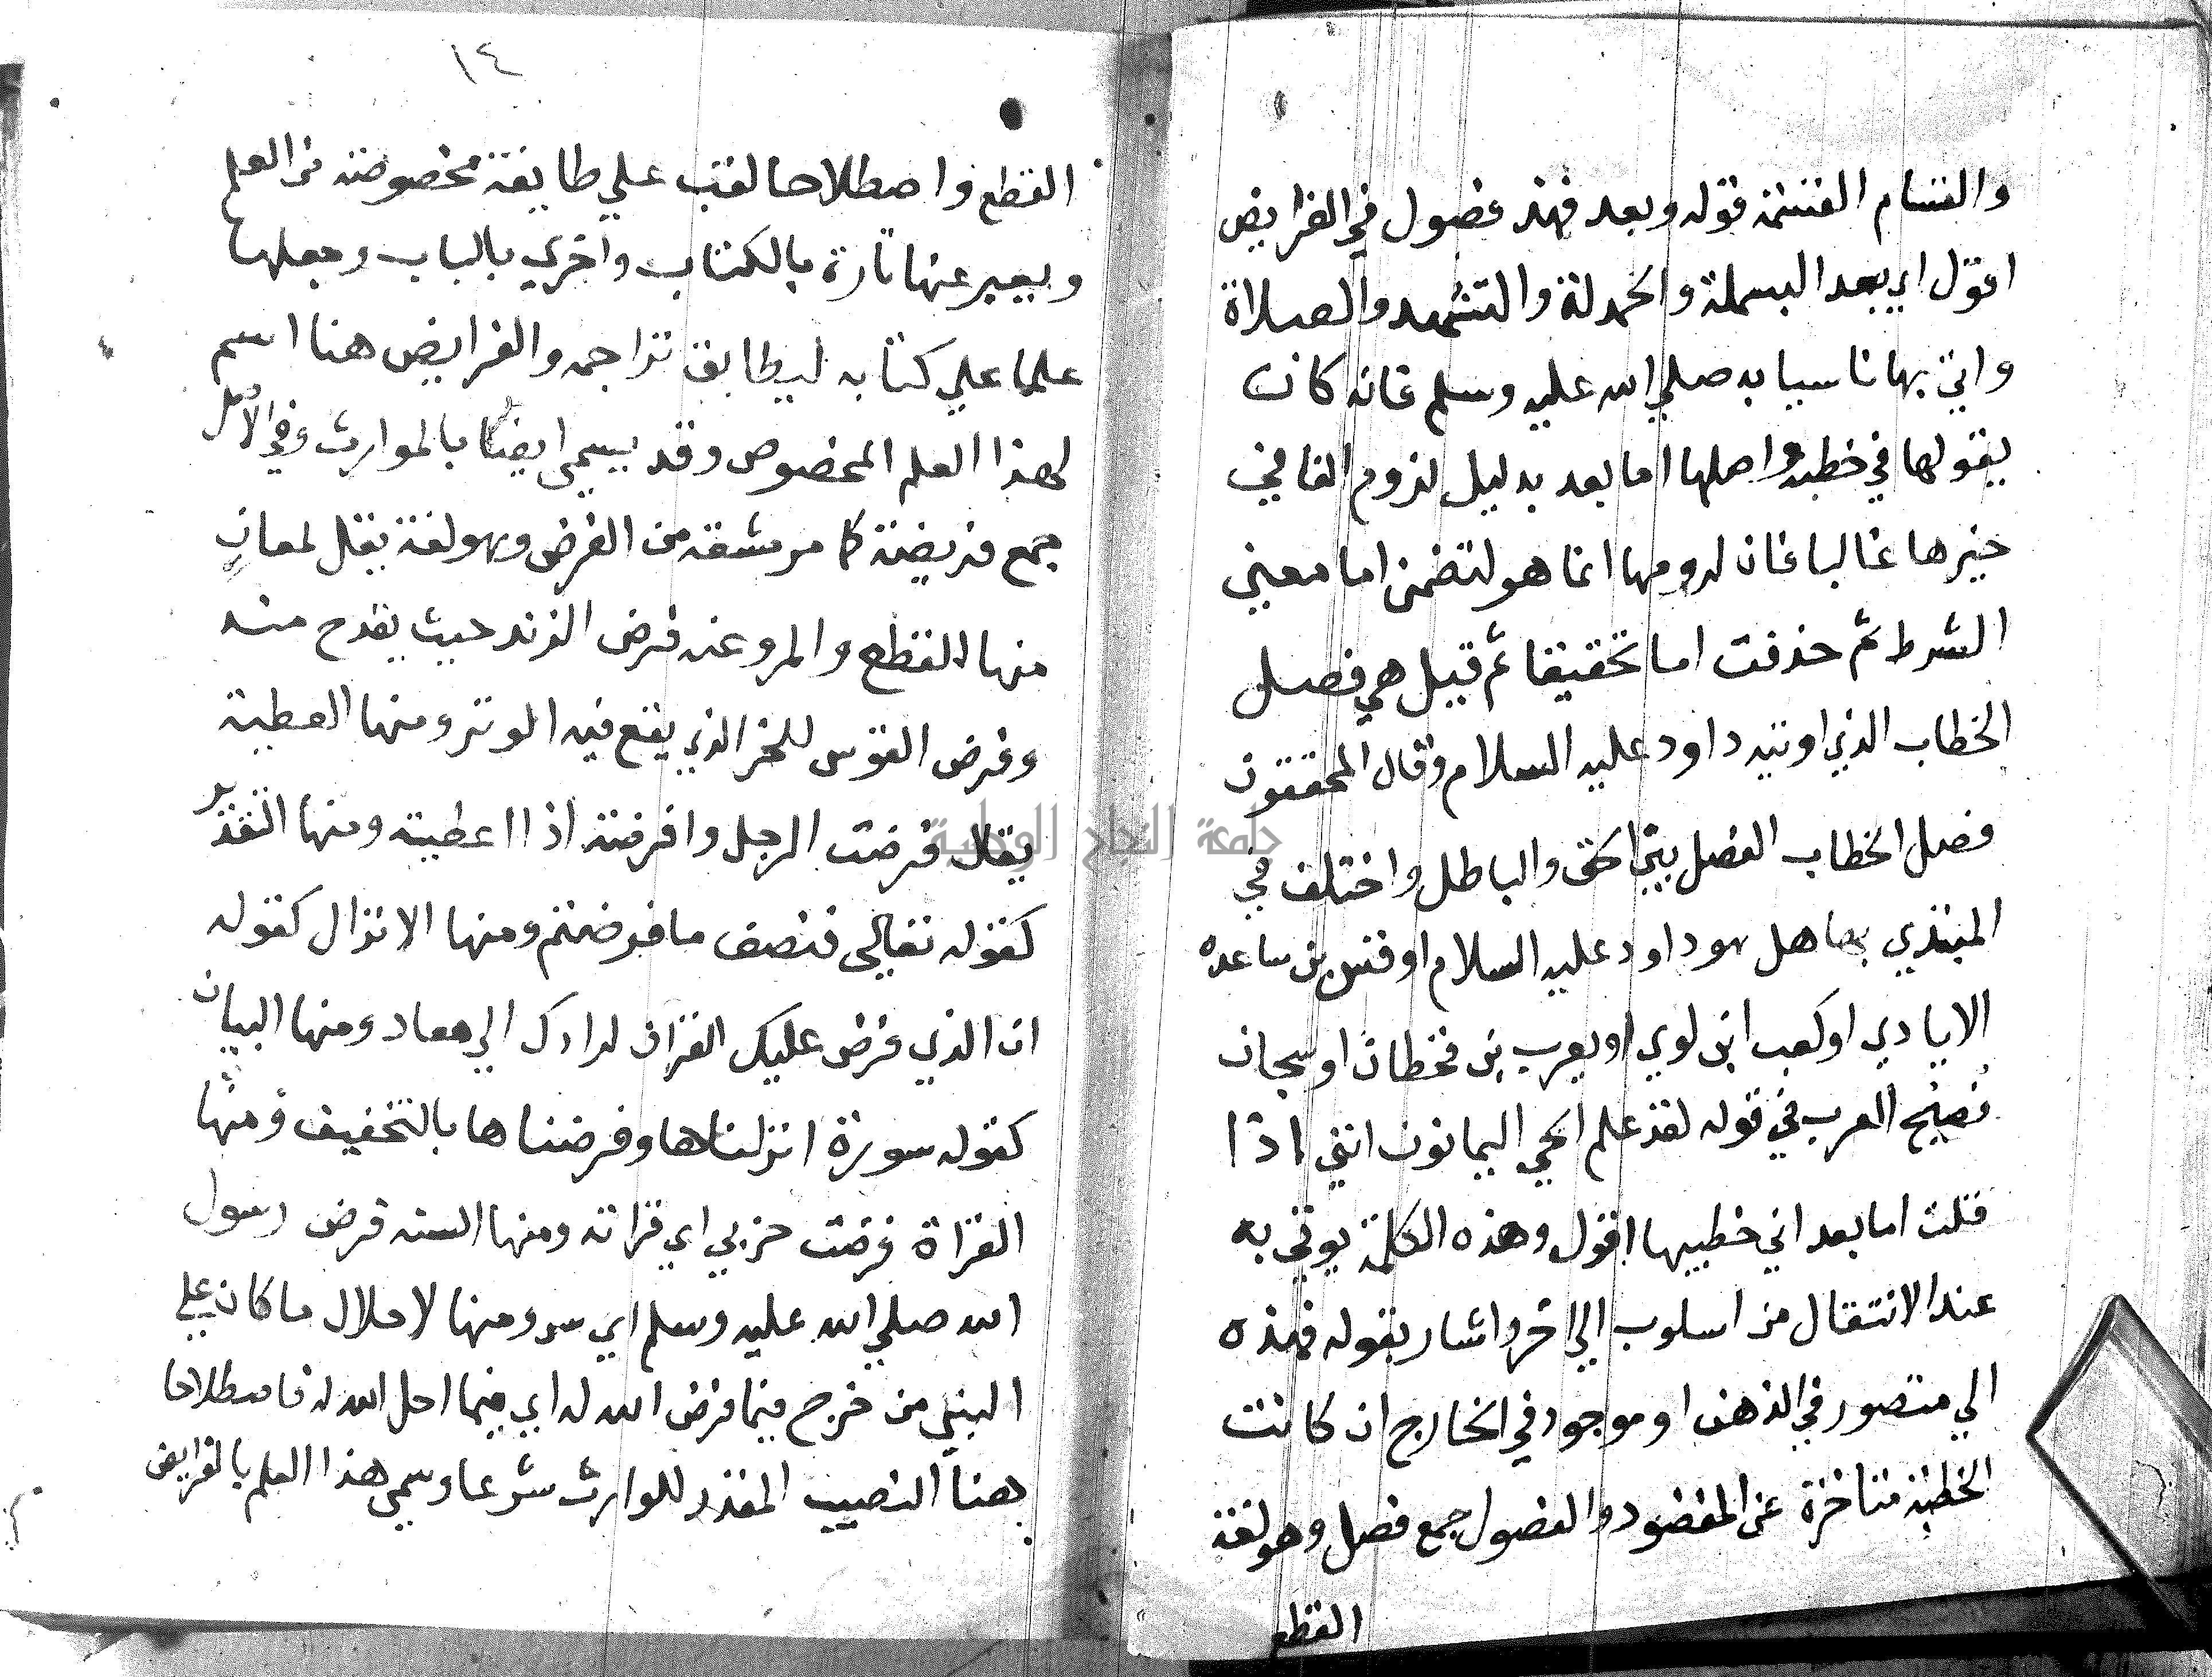 والقسام القسمة قوله وبعد فهذه فصول في الفرايض
اقول اي بعد البسملة والحمدلة والتشهد والصلاة
واتي بها تاسيا به صلي الله عليه وسلم فانه كان
يقولها في خطبه واصلها اما بعد بدليل لزوم الفا في
حيزها غالبا فان لزومها انما هو لتضمن اما معني
الشرط ثم حذفت اما تخفيفا ثم قيل هي فصل
الخطاب الذي اوتيه داود عليه السلام وقال المحققون
فصل الخطاب الفصل بين الحق والباطل واختلف في
المبتدي بها هل هو داود عليه السلام او قس بن ساعده
الايادي او كعب ابن لوي او يعرب بن قحطان او سحبان
فصيح العرب في قوله لقد علم الحي اليمانون انني اذا
قلت اما بعد اني خطيبها اقول وهذه الكلمة يوتي به
عند الانتقال من اسلوب الي اخر واشار بقوله فهذه
الي متصور في الذهن او موجود في الخارج ان كانت
الخطبة متاخرة عن المقصود والفصول جمع فصل وهو لغة
القطع
١٤
القطع واصطلاحا لقب علي طايفة مخصوصة من العلم
ويعبر عنها تارة بالكتاب واخري بالباب وجعلها
علما علي كتابه ليطابق تراجمه والفرايض هنا اسم
لهذا العلم المخصوص وقد يسمي ايضا بالمواريث وفي الاصل
جمع فريضة كما مر مشقه من الفرض وهو لغة يقل لمعان
منها القطع والمرو عنه فرض الزند حيث يقدح منه
وفرض القوس للحز الذي يقع فيه الوتر ومنها العطية
يقال فرضت الرجل وافرضته اذا اعطيته ومنها التقدير
كقوله تعالي فنصف ما فرضتم ومنها الانزال كقوله
ان الذي فرض عليك القران لرادك الي معاد ومنها البيان
كقوله سورة انزلناها وفرضناها بالتخفيف ومنها
القراة فرضت حزبي اي قراته ومنها السنه فرض رسول
الله صلي الله عليه وسلم اي سن ومنها لاحلال ما كان علي
النبي من حرج فيما فرض الله له اي فيما احل الله له فاصطلاحا
هنا النصيب المقدر للوارث شرعا وسمي هذا العلم بالفرايض
جامعة النجاح الوطنية